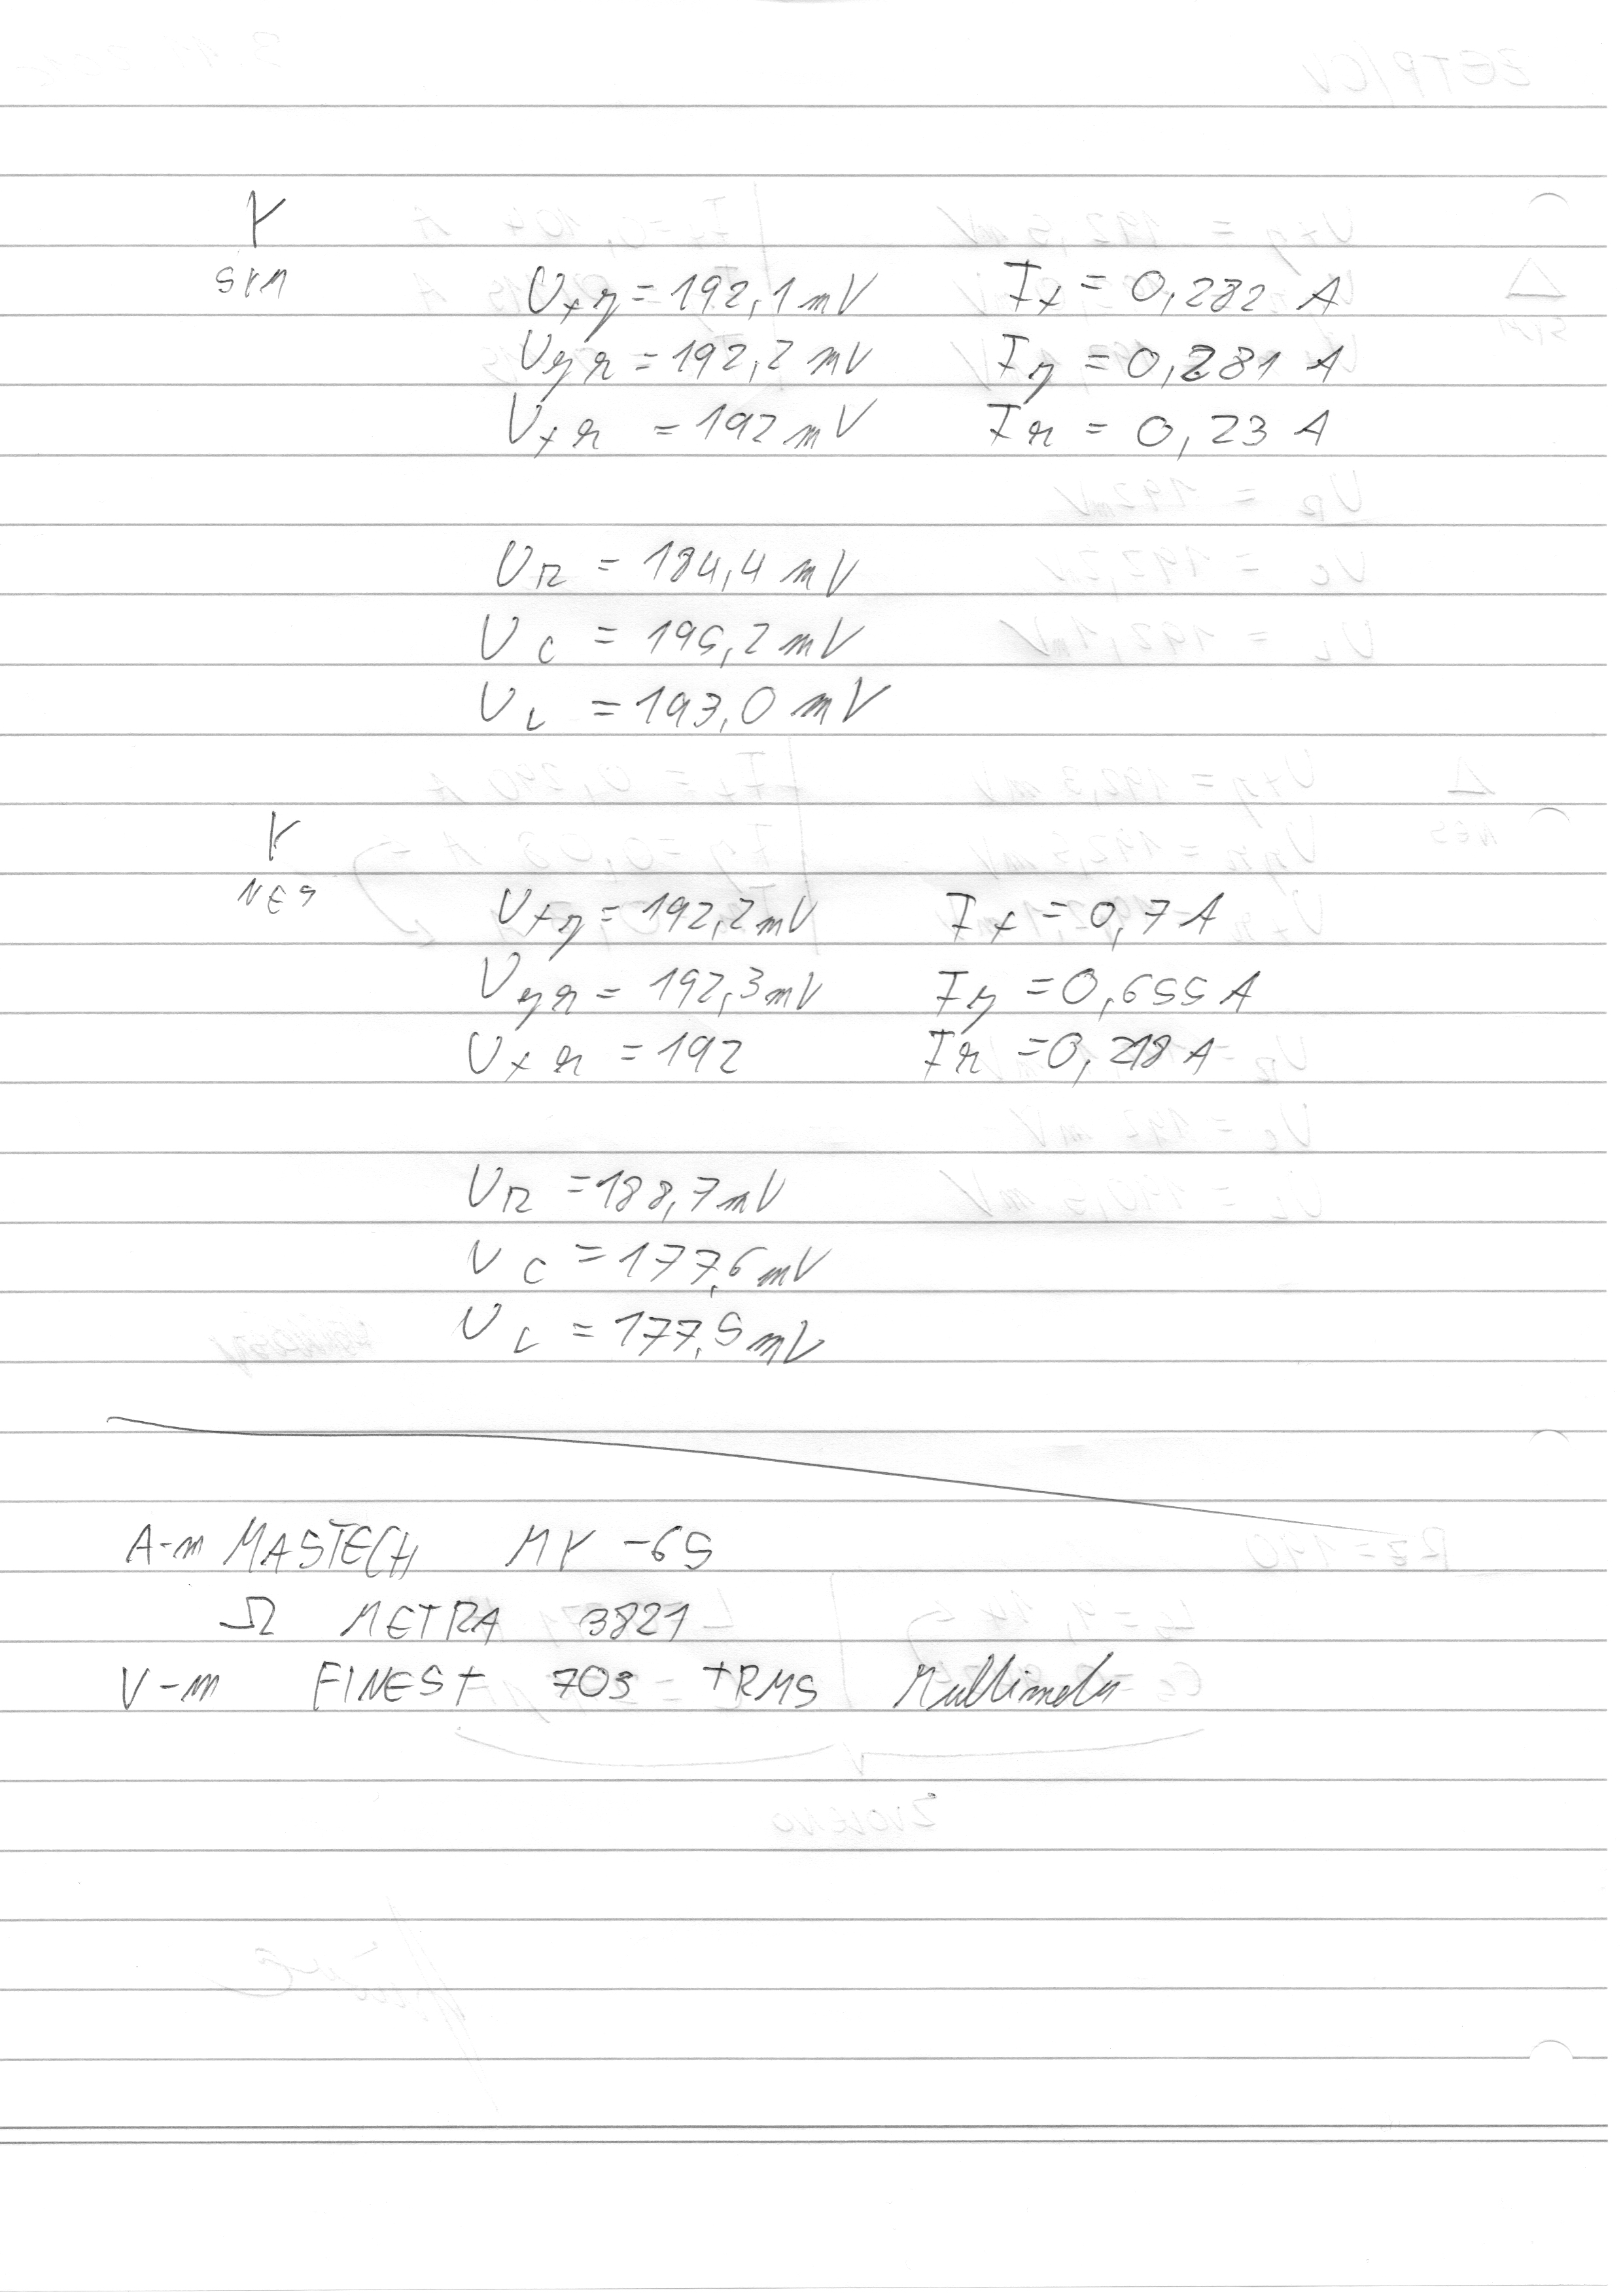 Y
SYM
Uxy = 192,1 mV Ix = 0,282 A
Uyz = 192,2 mV Iy = 0,281 A
Uxz = 192 mV Iz = 0,23 A
UR = 184,4 mV
UC = 195,2 mV
UL = 193,0 mV
Y
NES
Uxy = 192,2 mV Ix = 0,7 A
Uyz = 192,3 mV Iy = 0,655 A
Uxz = 192 Iz = 0,218 A
UR = 188,7 mV
UC = 177,6 mV
UL = 177,5 mV
A-m MASTECH MY-65
Ω METRA 3821
V-m FINEST 703 TRMS Multimetr